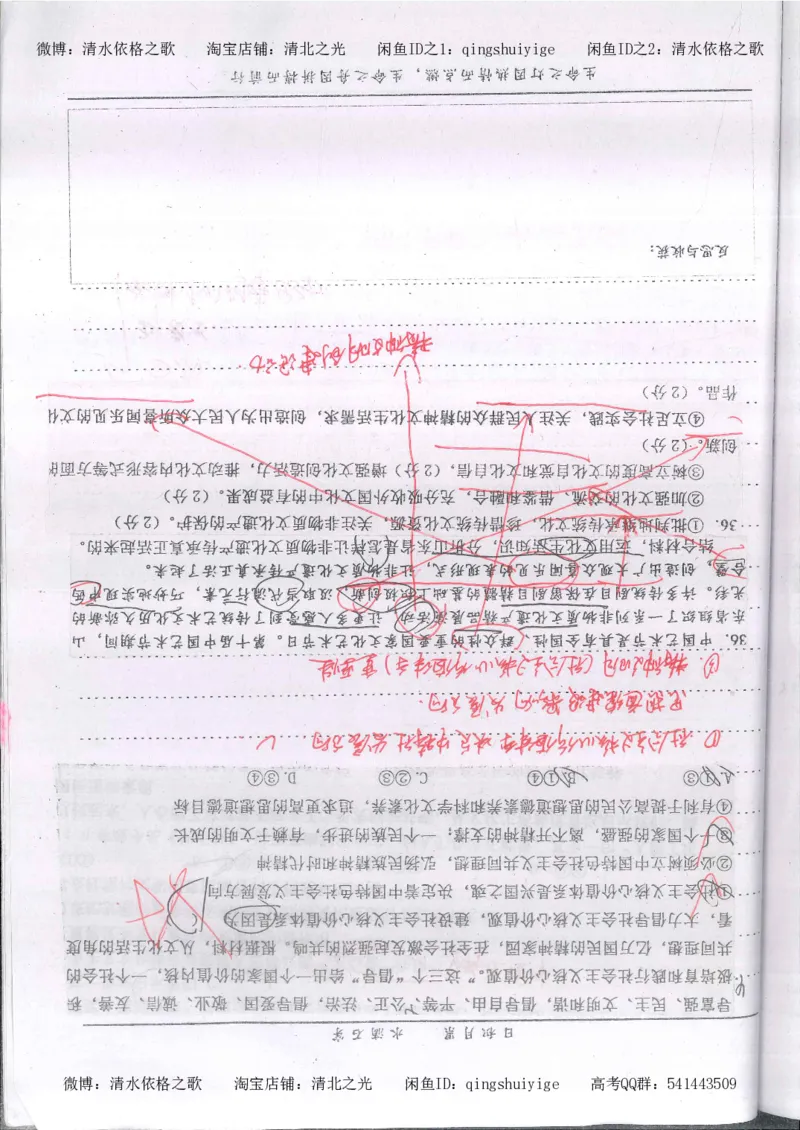 微博：清水依格之歌 淘宝店铺：清北之光 闲鱼ID之1：qingshuiyige 闲鱼ID之2：清水依格之歌
日积月累 水滴石穿
导富强、民主、文明和谐，倡导自由、平等、公正、法治，倡导爱国、敬业、诚信、友善，积
极培育和践行社会主义核心价值观。”这三个“倡导”给出一个国家的价值内核，一个社会的
共同理想，亿万国民的精神家园，在全社会激发起强烈的共鸣。根据材料，从文化生活的角度
看，大力倡导社会主义核心价值观，建设社会主义核心价值体系是因为
①社会主义核心价值体系是兴国之魂，决定着中国特色社会主义发展方向
②必须树立中国特色社会主义共同理想，弘扬民族精神和时代精神
③一个国家的强盛，离不开精神的支撑；一个民族的进步，有赖于文明的成长
④有利于提高公民的思想道德素养和科学文化素养，追求更高的思想道德目标
A.①③ B.①④ C.②③ D.③④
36．中国艺术节是具有全国性、群众性的重要国家文化艺术节日。第十届中国艺术节期间，山
东省组织了一系列非物质文化遗产精品展演活动，让更多人感受到了传统艺术文化历久弥新的
光彩。许多传统剧目在保留剧目精髓的基础上积极创新，汲取当代流行元素，巧妙地实现中西
合璧，创造出广大观众喜闻乐见的表现形式，让非物质文化遗产传承真正活了起来。
结合材料，运用文化生活知识，分析山东省是怎样让非物质文化遗产传承真正活起来的。
36．①批判地继承传统文化，珍惜传统文化资源，关注非物质文化遗产的保护。（2分）
②加强文化的交流、借鉴和融合，充分吸收外国文化中的有益成果。（2分）
③树立高度的文化自觉和文化自信，（2分）增强文化创造活力，推动文化内容形式等方面的
创新。（2分）
④立足社会实践，关注人民群众的精神文化生活需求，创造出为人民大众所喜闻乐见的文化
作品。（2分）
精神文明创建活动
反思与收获：
生命之灯因热情而点燃，生命之舟因拼搏而前行。
微博：清水依格之歌 淘宝店铺：清北之光 闲鱼ID：qingshuiyige 高考QQ群：541443509